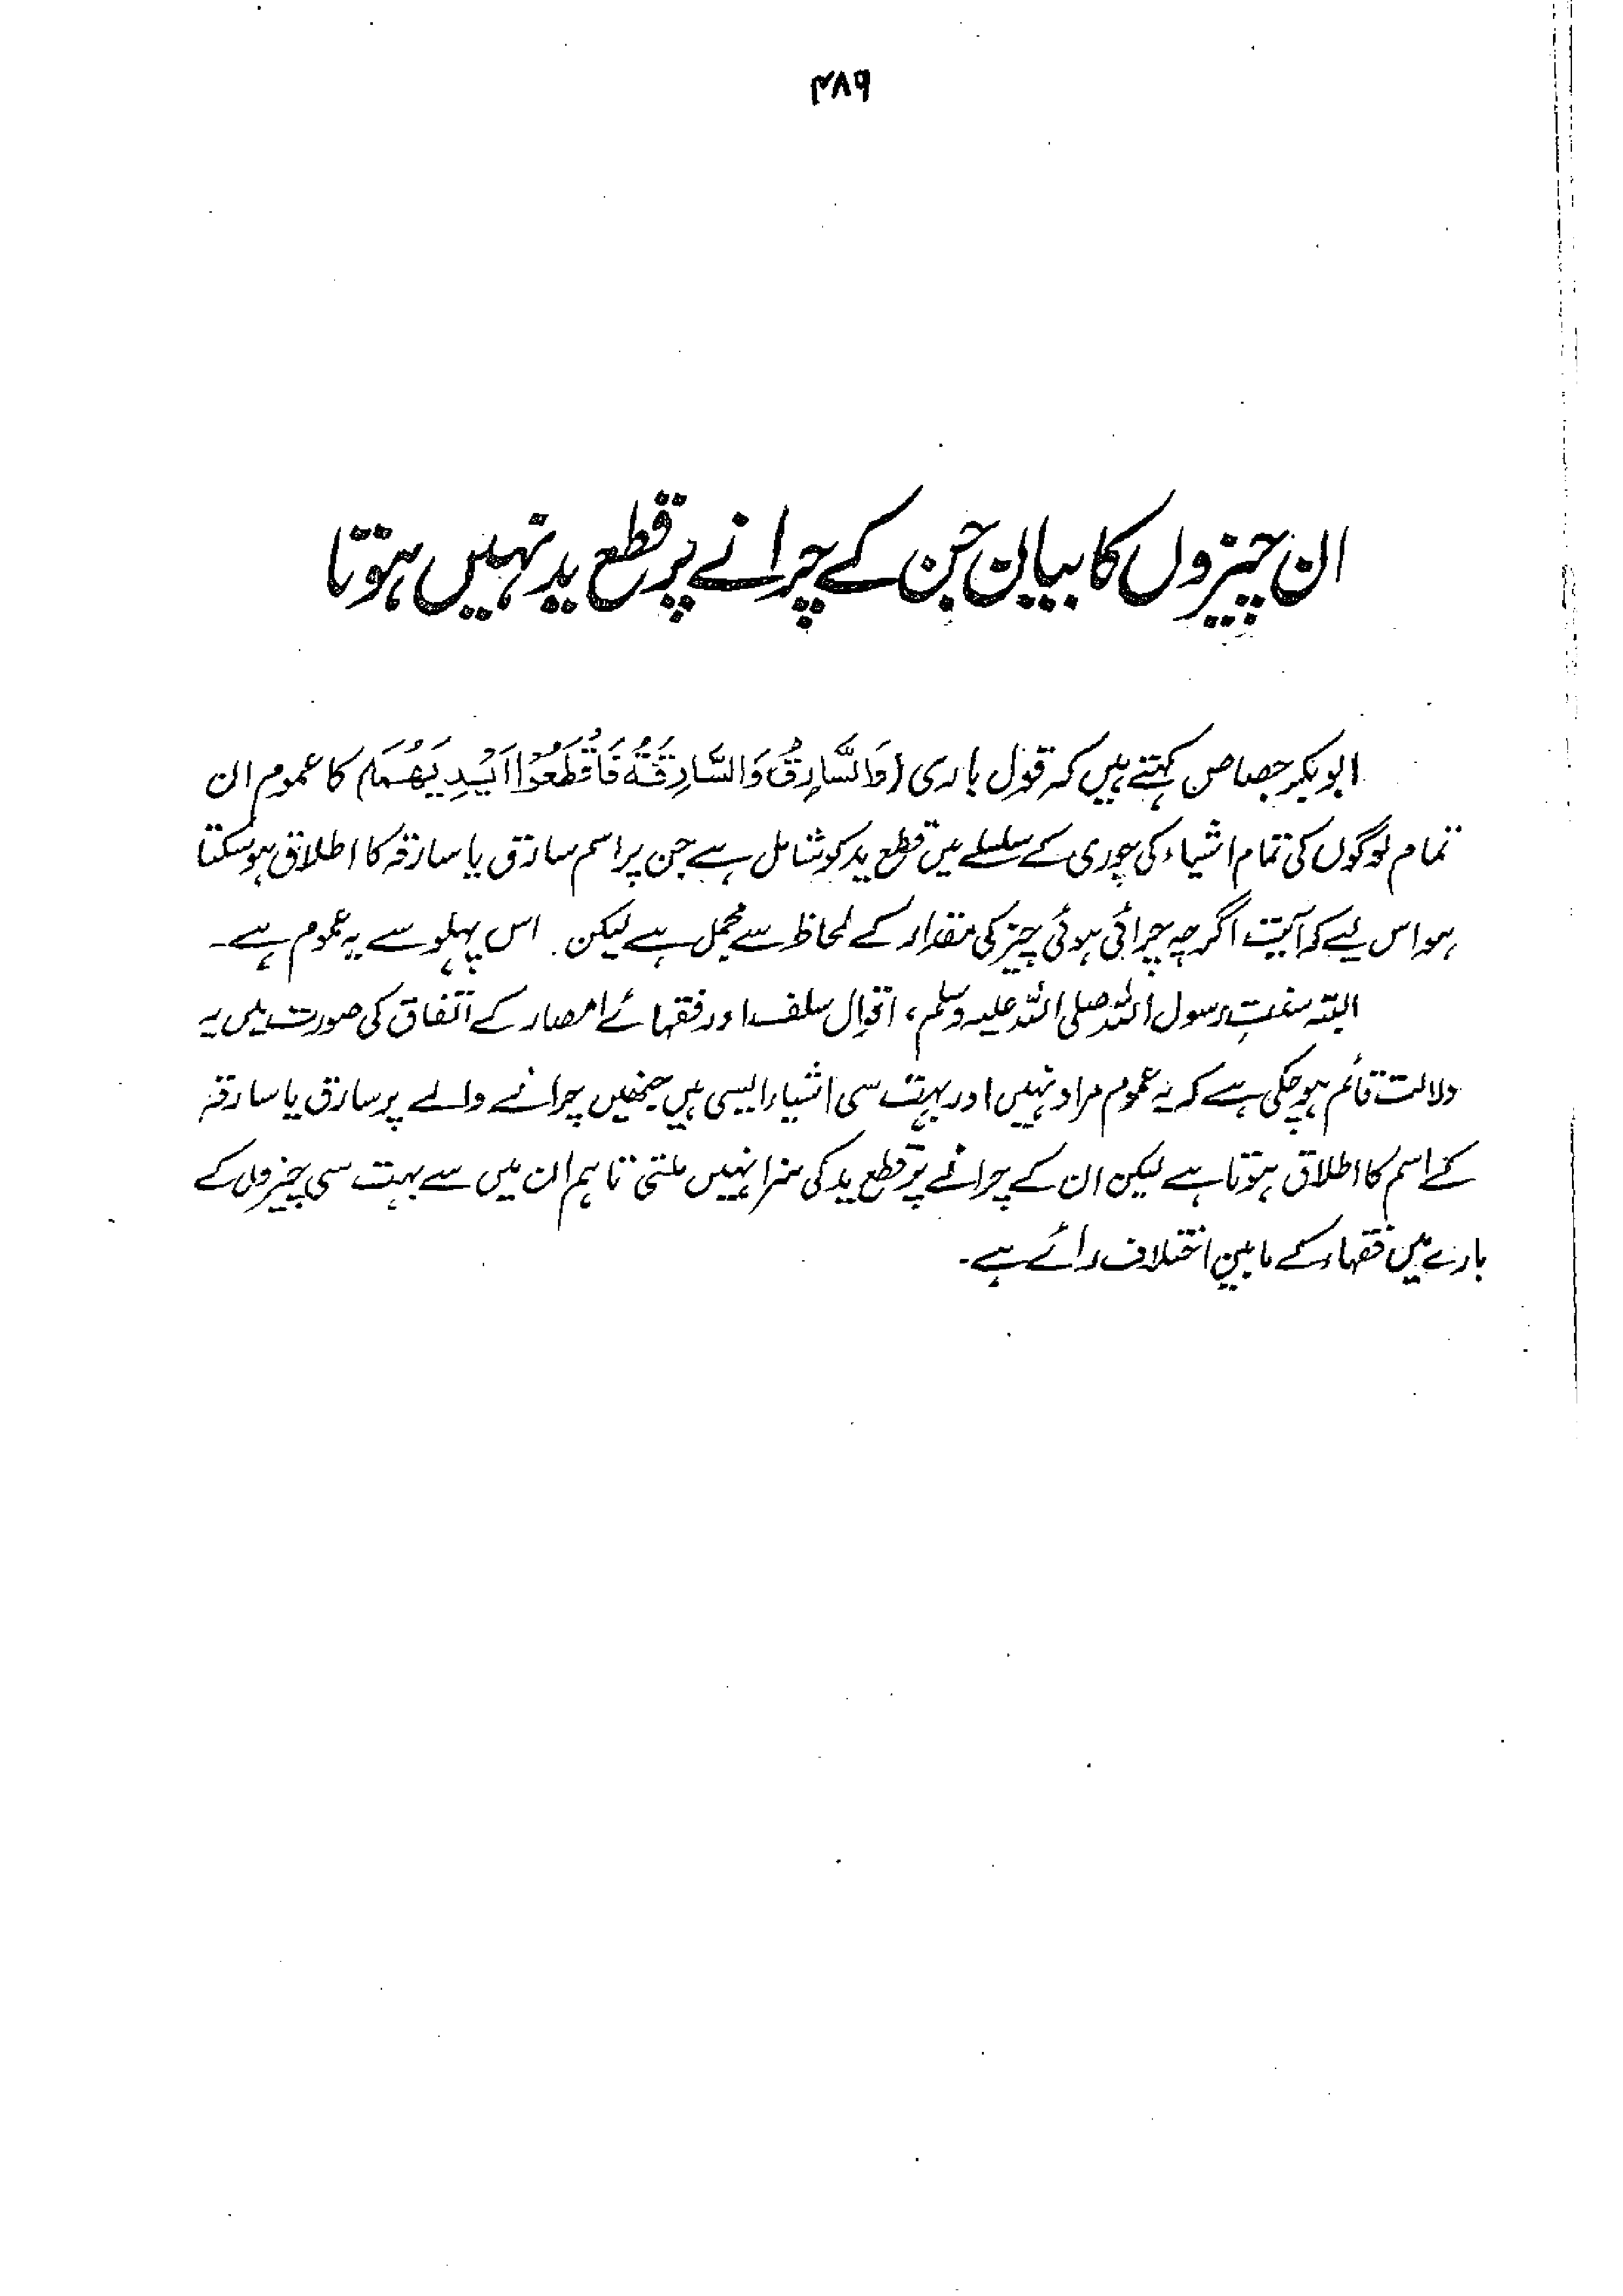 ۳۸۹
ان چیزوں کا بیان جن کے چرانے پر قطع ید نہیں ہوتا
ابوبکر جصاص کہتے ہیں کہ قول باری (وَالسَّارِقُ وَالسَّارِقَةُ فَاقْطَعُوْا اَيْدِيَهُمَا) کا عموم ان
تمام لوگوں کی تمام اشیاء کی چوری کے سلسلے میں قطع ید کو شامل ہے جن پر اسم سارق یا سارقہ کا اطلاق ہو سکتا
ہو اس لیے کہ آیت اگرچہ چرائی ہوئی چیز کی مقدار کے لحاظ سے مجمل ہے لیکن اس پہلو سے یہ عموم ہے۔
البتہ سنتِ رسول اللہ صلی اللہ علیہ وسلم، اقوال سلف اور فقہائے امصار کے اتفاق کی صورت میں یہ
دلالت قائم ہوچکی ہے کہ یہ عموم مراد نہیں اور بہت سی اشیاء ایسی ہیں جنھیں چرانے والے پر سارق یا سارقہ
کے اسم کا اطلاق ہوتا ہے لیکن ان کے چرانے پر قطع ید کی سزا نہیں ملتی تاہم ان میں سے بہت سی چیزوں کے
بارے میں فقہاء کے مابین اختلاف رائے ہے۔